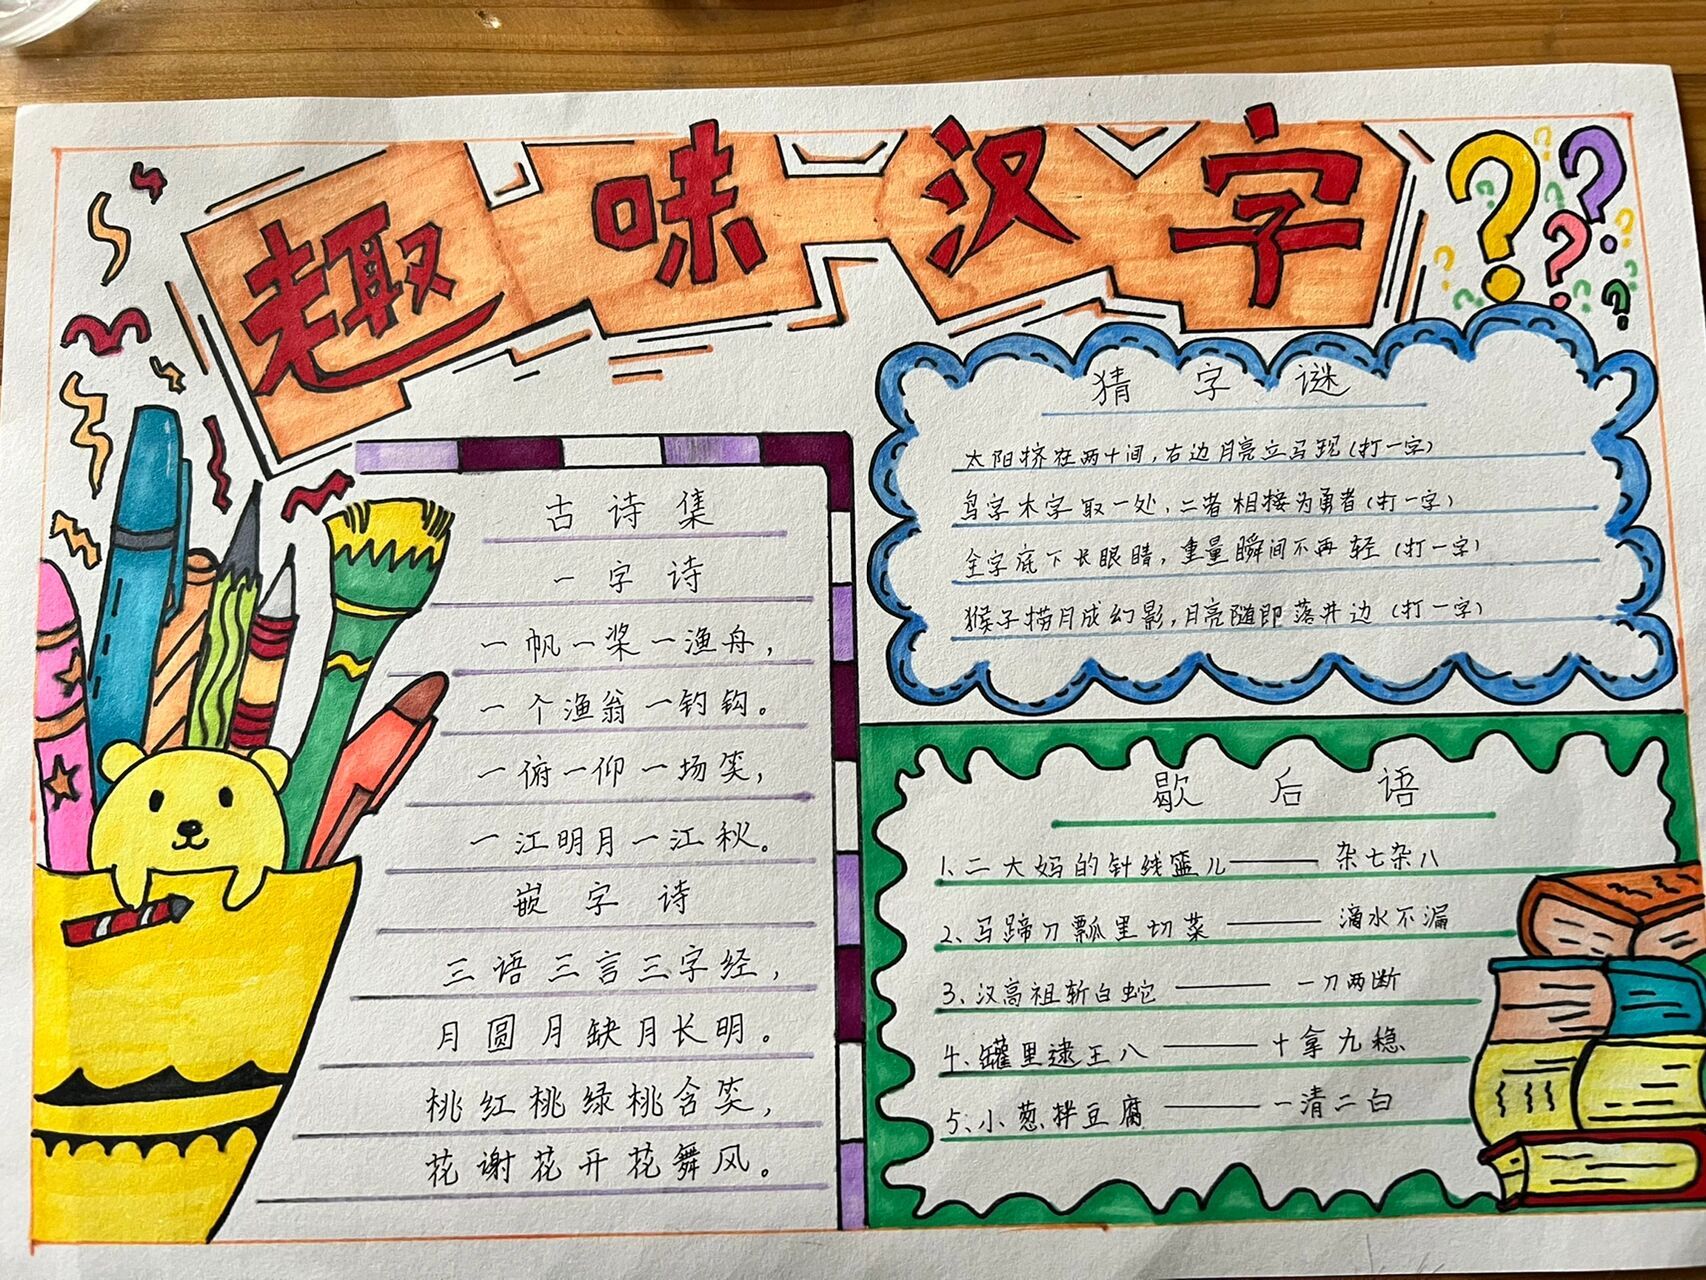 趣味汉字
古诗集
一字诗
一帆一桨一渔舟，
一个渔翁一钓钩。
一俯一仰一场笑，
一江明月一江秋。
嵌字诗
三语三言三字经，
月圆月缺月长明。
桃红桃绿桃含笑，
花谢花开花舞风。
猜字谜
太阳挤在两十间，右边月亮立马现（打一字）
鸟字木字取一处，二者相接为勇者（打一字）
全字底下长眼睛，重量瞬间不再轻（打一字）
猴子捞月成幻影，月亮随即落井边（打一字）
歇后语
1、二大妈的针线篮儿——杂七杂八
2、马蹄刀瓢里切菜——滴水不漏
3、汉高祖斩白蛇——一刀两断
4、罐里逮王八——十拿九稳
5、小葱拌豆腐——一清二白